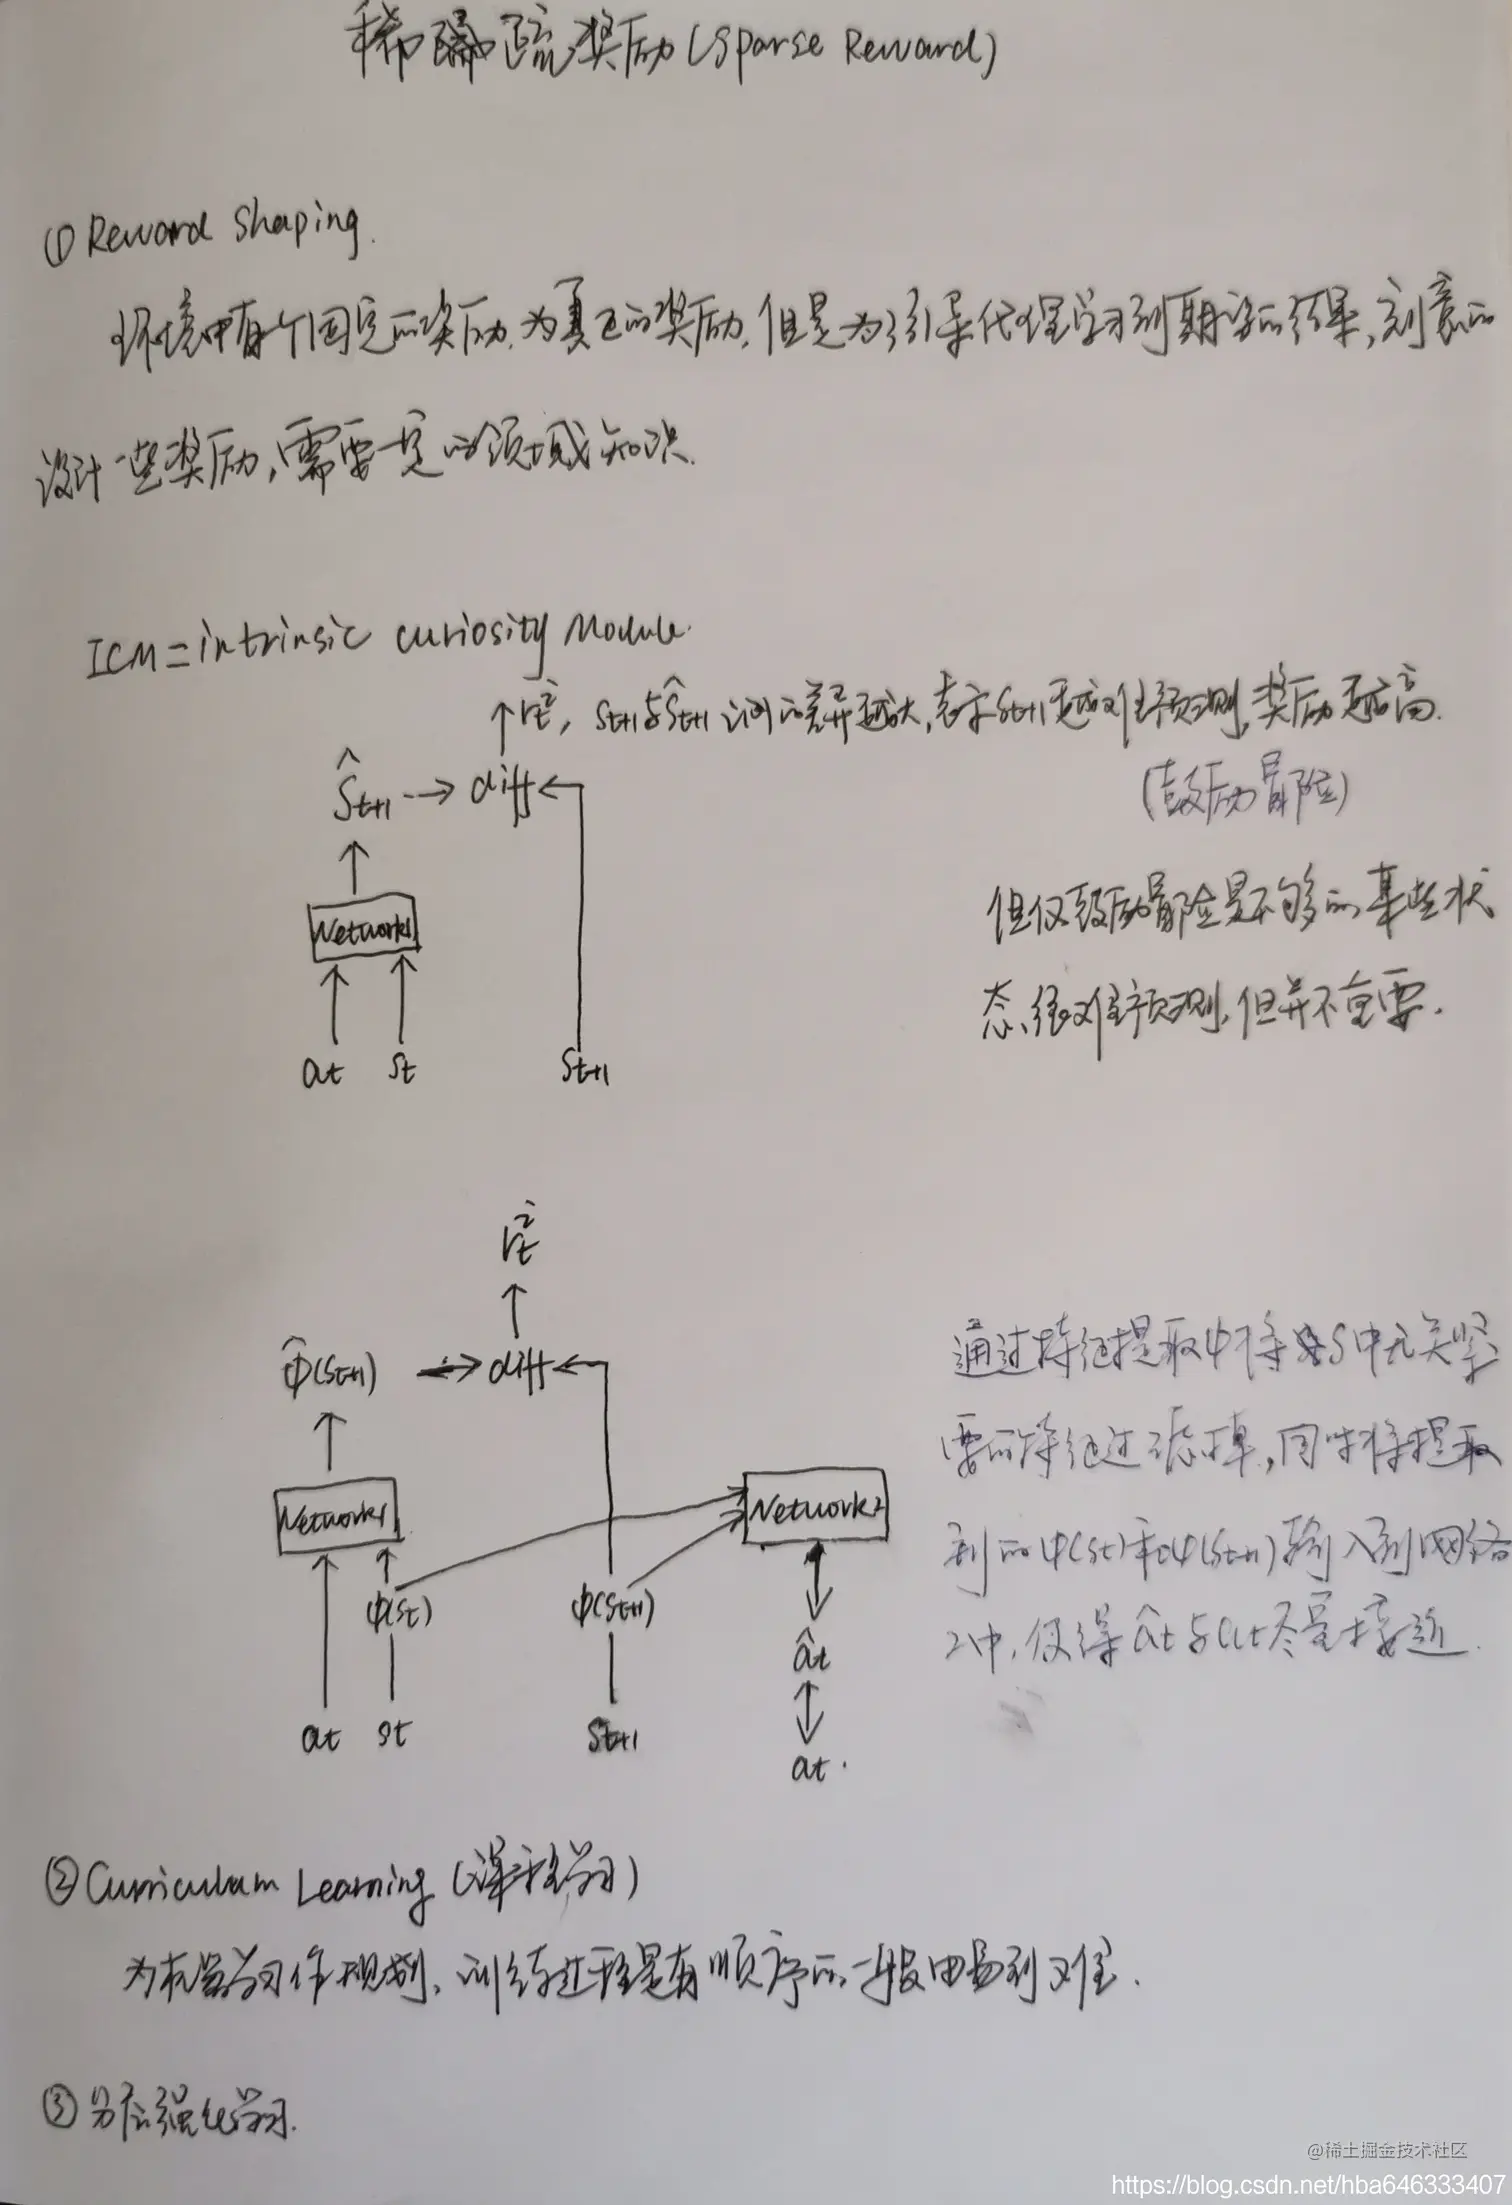 稀疏奖励(Sparse Reward)
① Reward Shaping.
环境中有个固定的奖励,为真正的奖励,但是为了引导代理学习到期望的结果,刻意的
设计一些奖励,需要一定的领域知识.
ICM=intrinsic curiosity Module.
↑rₜⁱ, Sₜ₊₁与Ŝₜ₊₁之间的差异越大,表示Sₜ₊₁越难预测,奖励越高.
Ŝₜ₊₁ → diff ←
(鼓励冒险)
但仅鼓励冒险是不够的,某些状
Network1
态很难预测,但并不重要.
aₜ Sₜ Sₜ₊₁
rₜⁱ
通过特征提取φ将S中无关紧
φ̂(Sₜ₊₁) → diff ←
要的特征过滤掉,同时将提取
Network1 Network2
到的φ(Sₜ)和φ(Sₜ₊₁)输入到网络
φ(Sₜ) φ(Sₜ₊₁)
2中,使得âₜ与aₜ尽量接近.
âₜ
aₜ Sₜ Sₜ₊₁
aₜ.
② Curriculum Learning (课程学习)
为机器学习作规划,训练过程是有顺序的,一般由易到难.
③ 分层强化学习.
@稀土掘金技术社区
https://blog.csdn.net/hba646333407